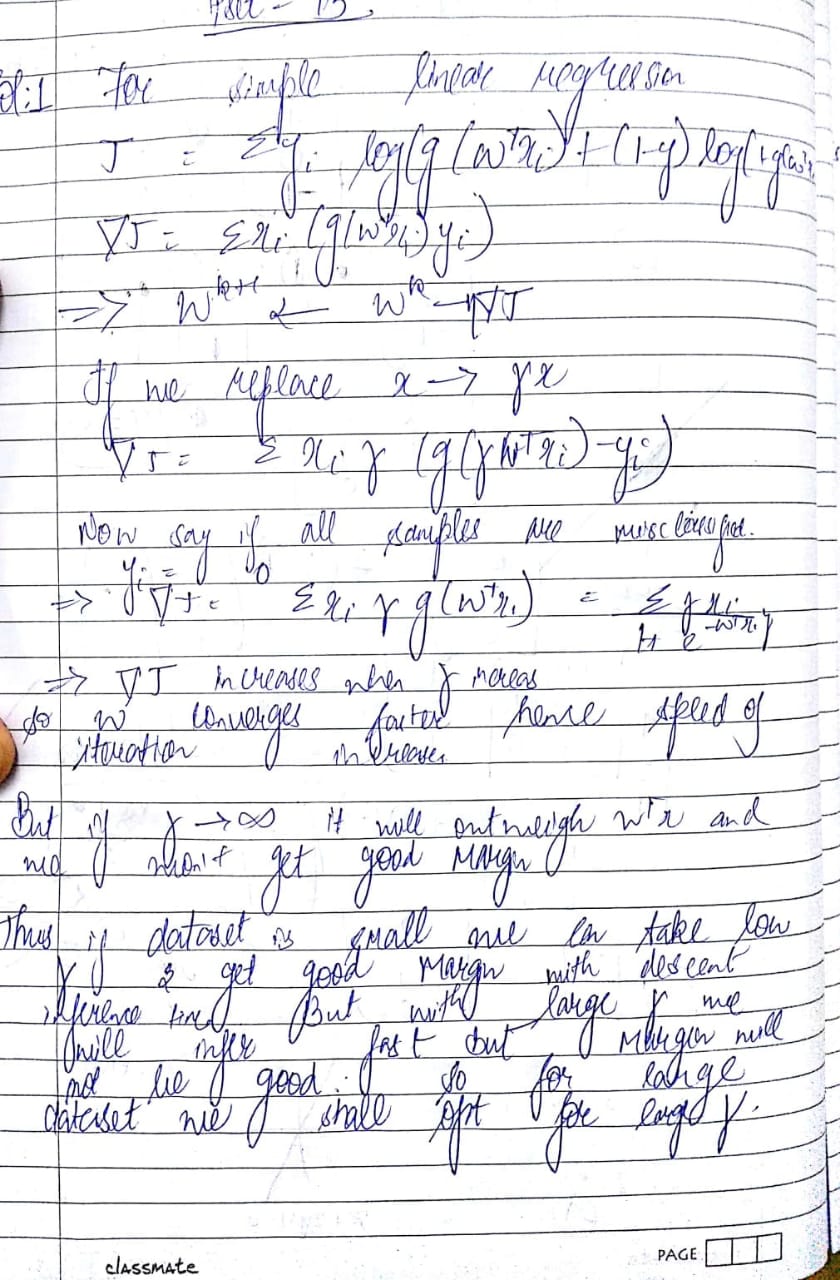 Part - B
Sol:1 For simple linear regression
J = Σy_i log(g(w^T x_i) + (1-y) log(1-g(w^T x_i
∇J = Σx_i (g(w^T x_i) y_i)
=> w^{k+1} ← w^k - η∇J
If we replace x → γx
∇J = Σ x_i γ (g(γ w^T x_i) - y_i)
Now say if all samples are
y_i = 0
=> ∇J = Σ x_i γ g(w^T x_i) = Σ γ x_i / 1+ e^{-w^T x_i γ}
=> ∇J increases when γ increas
so w converges faster hence speed of
iteration increases
But if γ → ∞ it will outweigh w^T x and
we won't get good margin
Thus if dataset is small we can take low
γ & get good margin with descent
inference time But with large γ we
will infer fast but margin will
not be good. So for large
dataset we shall opt for large γ.
classmate
PAGE